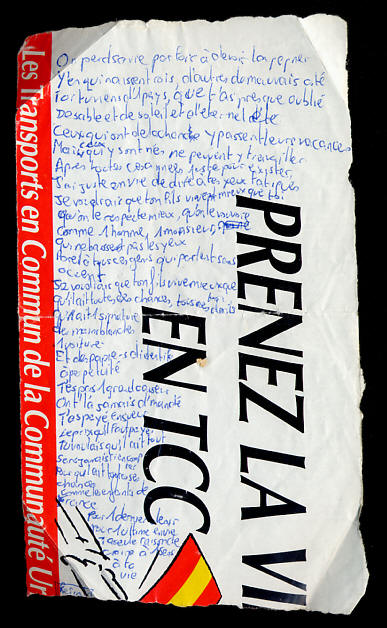 Les Transports en Commun de la Communauté Ur
PRENEZ LA VI
EN TCC
On perd sa vie parfois à devoir la gagner
Y'en qui naissent rois, d'autres du mauvais côté
Toi tu viens d'1 pays, que t'as presque oublié
De sable et de soleil et d'éternel été
Ceux qui ont de la chance y passent leurs vacances
Mais ceux qui y sont nés ne peuvent y travailler
Après toutes ces années juste pour exister,
J'ai juste envie de dire à tes yeux fatigués
Je voudrais que ton fils vive mieux que toi
qu'on le respecte mieux, qu'on le vouvoie
Comme 1 homme, 1 monsieur,
qui ne baisse pas les yeux
devant tous ces gens qui parlent sans
accent
Je voudrais que ton fils vive mieux que
qu'il ait toutes ses chances, tous ses droits
Qu'il ait 1 signature
de mains blanches
1 voiture
Et des papiers d'identité
à perpétuité
T'es pas 1 grand causeur
On t'a jamais demandé
T'as payé en sueur
Le prix qu'il faut payer
Tu voulais qu'il ait tout
Pour qu'il ait toutes ses
chances
comme les enfants de
France
Pour 1 dernier
Pour 1 ultime envie
à ta
vie